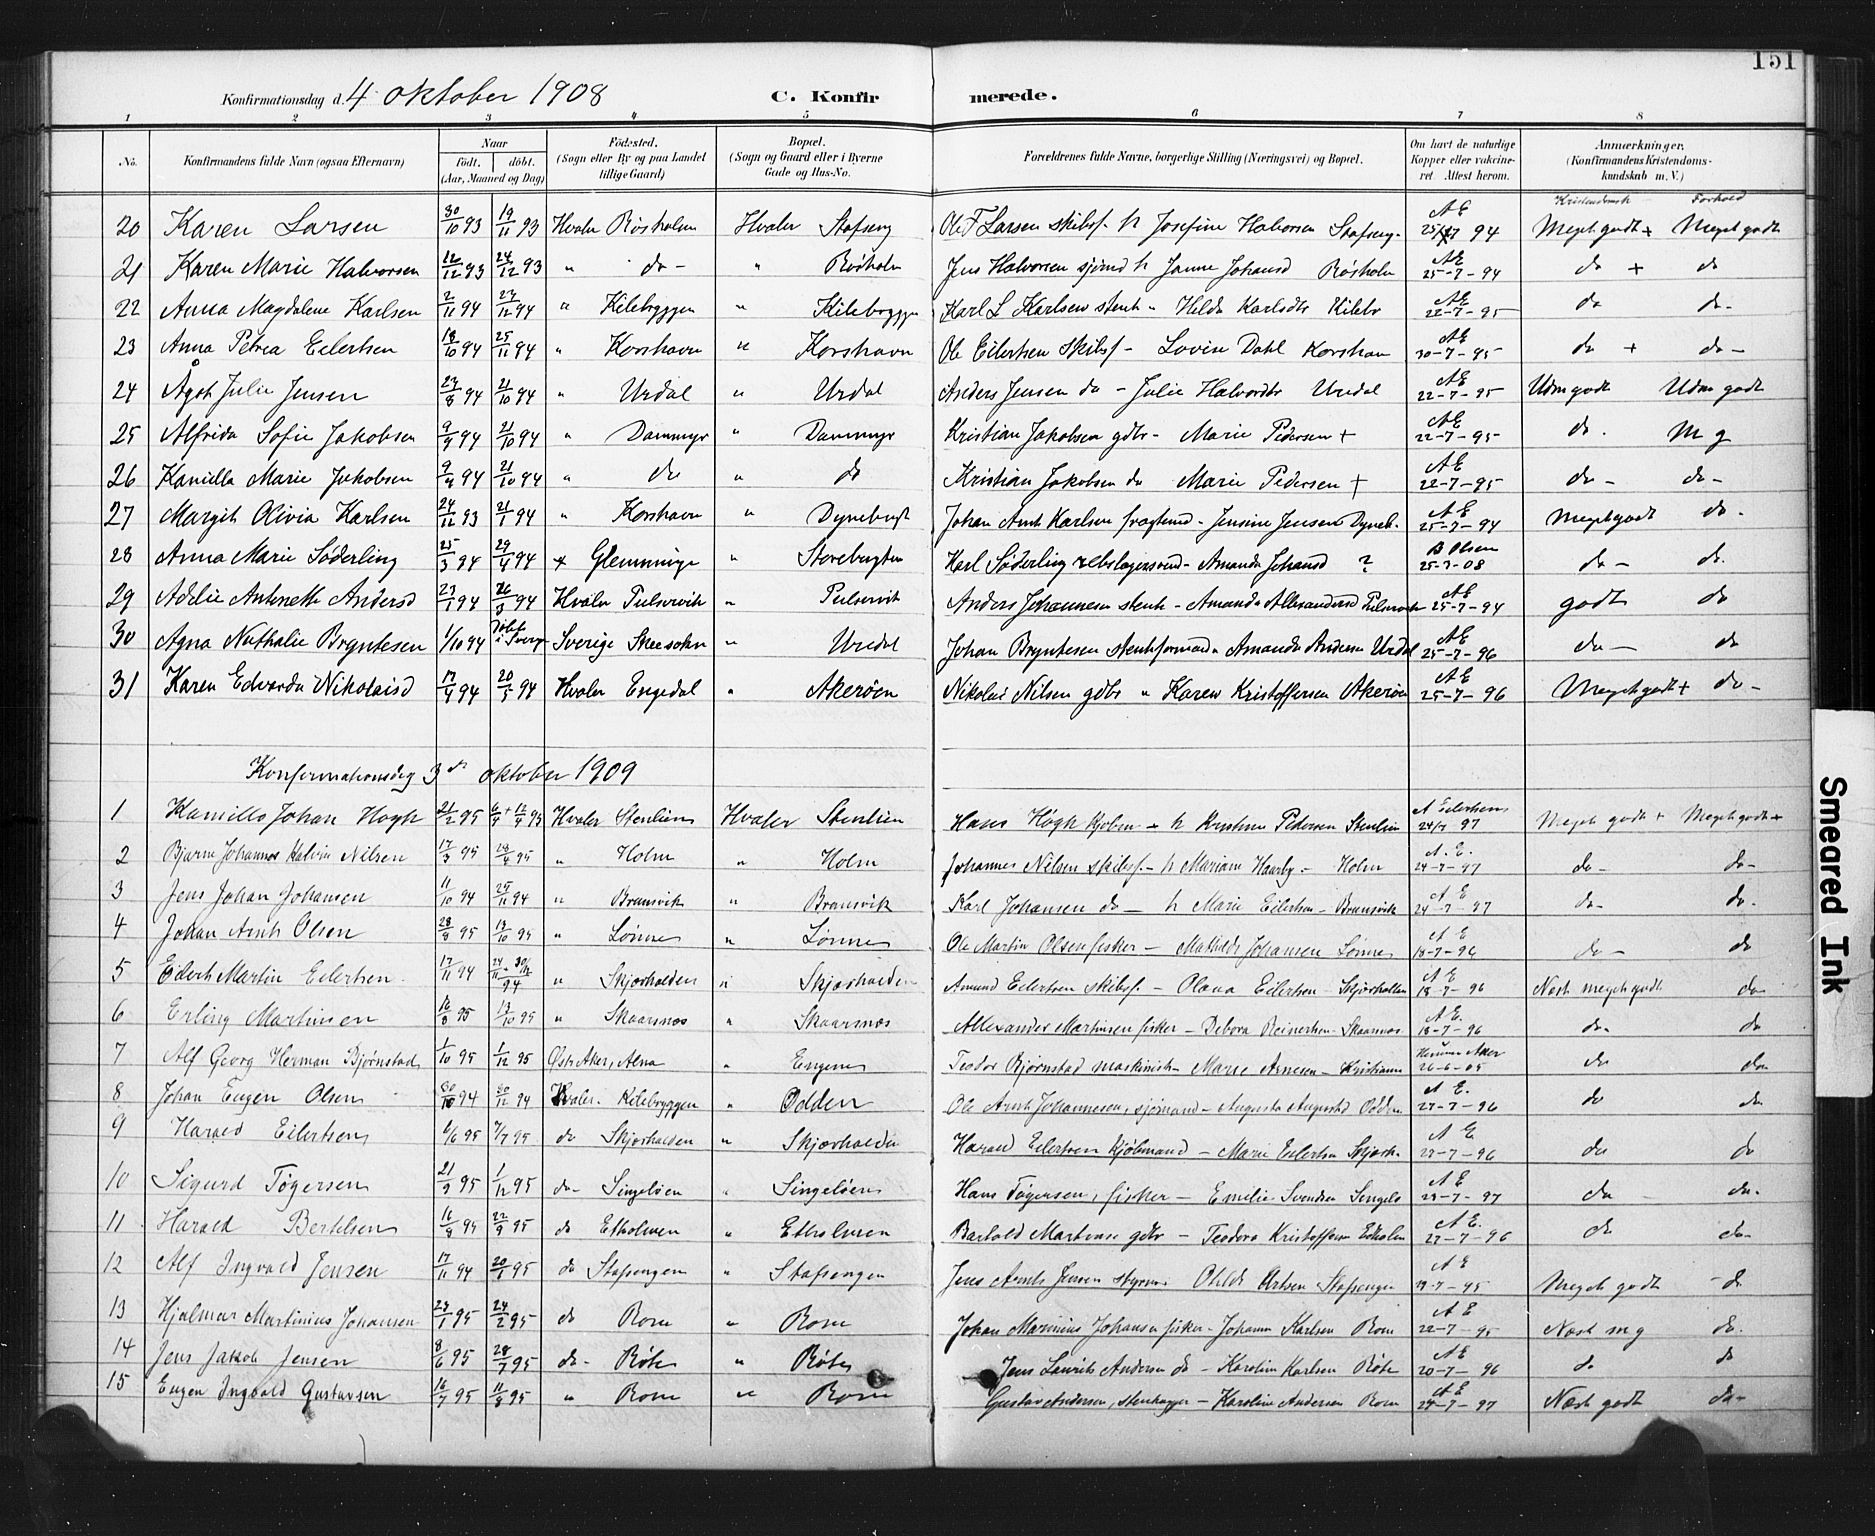 151
Konfirmationsdag d. 4 oktober 1908 C. Konfirmerede.
1 2 3 4 5 6 7 8
No. Konfirmandens fulde Navn (ogsaa Efternavn) Naar født, døbt. (Aar, Maaned og Dag) Födested. (Sogn eller By og paa Landet tillige Gaard) Bopæl. (Sogn og Gaard eller i Byerne Gade og Hus-No. Forældrenes fulde Navne, borgerlige Stilling (Næringsvei) og Bopæl. Om havt de naturlige Kopper eller vakcineret. Attest herom. Anmærkninger. (Konfirmandens Kristendomskundskab m. V.)
Kristendomsk Forhold
20 Karen Larsen 30/10 93 19/11 93 Hvaler Røsholm Hvaler Stafseng Ole F Larsen skibsf. h Josefine Halvorsen Stafseng. AE 94 Megetgodt + Megetgodt
21 Karen Marie Halvorsen 12/12 93 24/12 93 " do - " Røsholm Jens Halvorsen sjømd h Janne Johansd Røsholm AE 25-7-94 do + do
22 Anna Magdalene Karlsen 2/11 94 27/12 94 " Kilebryggen " Kilebrygge Karl L Karlsen stenh - Hilda Karlsdtr Kilebr AE 22-7-95 do do-
23 Anna Petrea Eilertsen 18/10 94 25/11 94 " Korshavn " Korshavn Ole Eilertsen skibsf - Lovise Dahl Korshavn AE 30-7-95 do + do-
24 Ågot Julie Jensen 27/8 94 21/10 94 " Urdal " Urdal Anders Jensen do - Julie Halvordtr Urdal AE 22-7-95 Udm godt Udm godt
25 Alfrida Sofie Jakobsen 9/9 94 21/10 94 " Dammyr " Dammyr Kristian Jakobsen gdbr - Marie Pedersen + AE 22-7-95 do. M g
26 Kamilla Marie Jakobsen 9/9 94 21/10 94 " do " do Kristian Jakobsen do Marie Pedersen + AE 22-7-95 do- do-
27 Margit Olivia Karlsen 24/12 93 21/1 94 " Korshavn " Dynebugt Johan Arnt Karlsen fragtmd - Jensine Jensen Dyneb. AE 25-7-94 Megetgodt do-
28 Anna Marie Söderling 25/3 94 29/4 94 + Glemminge " Storebugten Karl Söderling rebslagersvend - Amanda Johansd ? B Olsen 25-7-08 do- do.
29 Adelie Antonette Andersd 27/1 94 26/3 94 Hvaler Pulservik " Pulservik Anders Johannesen stenh - Amanda Allexandersd Pulservik AE 25-7-94 godt do
30 Agna Nathalie Bryntesen 1/10 94 Døbt i Sverge Sverige Skee sokn " Urdal Johan Bryntesen stenhformand Amanda Andersen Urdal AE 25-7-96 do- do
31 Karen Edvarda Nikolaisd 17/4 94 20/5 94 Hvaler Engedal " Akerøen Nikolai Nilsen gdbr " Karen Kristoffersen Akerøen AE 25-7-96 Megetgodt + do-
Konfirmationsdag 3die oktober 1909
1 Kamillo Johan Høgh 21/2 95 Hvaler Stenlien Hvaler Stenlien Hans Høgh Kjøbm - h Kristine Pedersen Stenlien A Eilertsen 24/7 97 Meget godt + Megetgodt +
2 Bjarne Johannes Halvin Nilsen 17/3 95 28/4 95 " Holm " Holm Johannes Nilsen skibsf. - h Mariane Haarby - Holm A. E. 24-7-97 do- do-
3 Jens Johan Johansen 11/10 94 25/11 94 " Bransvik " Bransvik Karl Johansen do - h Marie Eilertsen - Bransvik A E 24-7-97 do- do-
4 Johan Arnt Olsen 28/8 95 13/10 95 " Lønne " Lønne Ole Martin Olsen fisker - Mathilde Johansen Lønne A E 18-7-96 do- do
5 Eilert Martin Eilertsen 17/11 94 94 " Skjærhalden " Skjærhalden Amund Eilertsen skibsf. - Olava Eilertsen - Skjærhallen A E 18-7-96 Næst megetgodt do
6 Erling Martinsen 16/8 95 13/10 95 " Skaarsnes " Skaarsnes Allexander Martinsen fisker - Debora Reinertsen Skaarsnes A E. 18-7-96 do- do
7 Alf Georg Herman Bjørnstad 1/10 95 1/12 95 Østr. Aker, Alna " Engene Teodor Bjørnstad maskinist - Marie Arnesen - Kristiania 26-6-05 do do
8 Johan Eugen Olsen 30/10 94 30/12 94 Hvaler. Kilebryggen " Odden Ole Arnt Johannesen, sjømand - Augusta Augustd Odden A E. 27-7-96 do do
9 Harald Eilertsen 6/6 95 7/7 95 do Skjærhalden " Skjærhalden Harald Eilertsen Kjøbmand - Marie Eilertsen Skjærh. A E 27-7-96 do do
10 Sigurd Tøgersen 21/9 95 1/12 95 do- Singeløen " Singeløen Hans Tøgersen, fisker - Emilie Svendsen Singelø A E 27-7-97 do do.
11 Harald Bertelsen 16/8 95 22/9 95 do Etholmen " Etholmen Bartold Martinse gdbr - Teodora Kristoffersen Etholm A E. 27-7-96 do do-
12 Alf Ingvald Jensen 17/11 94 95 do Stafsengen " Stafsengen Jens Arnt Jensen styrm. Otilde Artsen Stafsengen A E 95 Meget godt - do
13 Hjalmar Martinius Johansen 23/1 95 24/2 95 do Rom " Rom Johan Marinius Johansen fisker - Johanne Karlsen Rom A E 22-7-95 Næst mg do.
14 Jens Jakob Jensen 8/6 95 28/7 95 do- Røte " Røte Jens Laurits Andersen do - Karoline Karlsen Røte AE 20-7-96 do do
15 Eugen Ingvald Gustavsen 16/7 95 11/8 95 " Rom " Rom Gustav Andersen, stenhugger - Karoline Andersen Rom A E 24-7-97 Næst godt do-
Smeared Ink